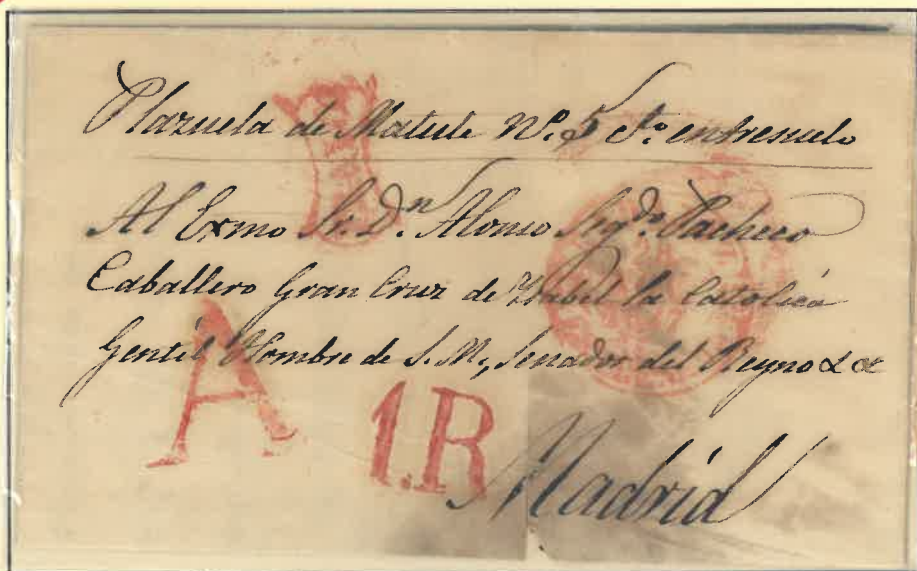 Plazuela de Matute Nº. 5 cº. entresuelo
Al Exmo Sr. Dn. Alonso Segdo. Pacheco
Caballero Gran Cruz de Ysabel la Catolica
Gentil Hombre de S. M., Senador del Reyno & &
A
1.R
Madrid